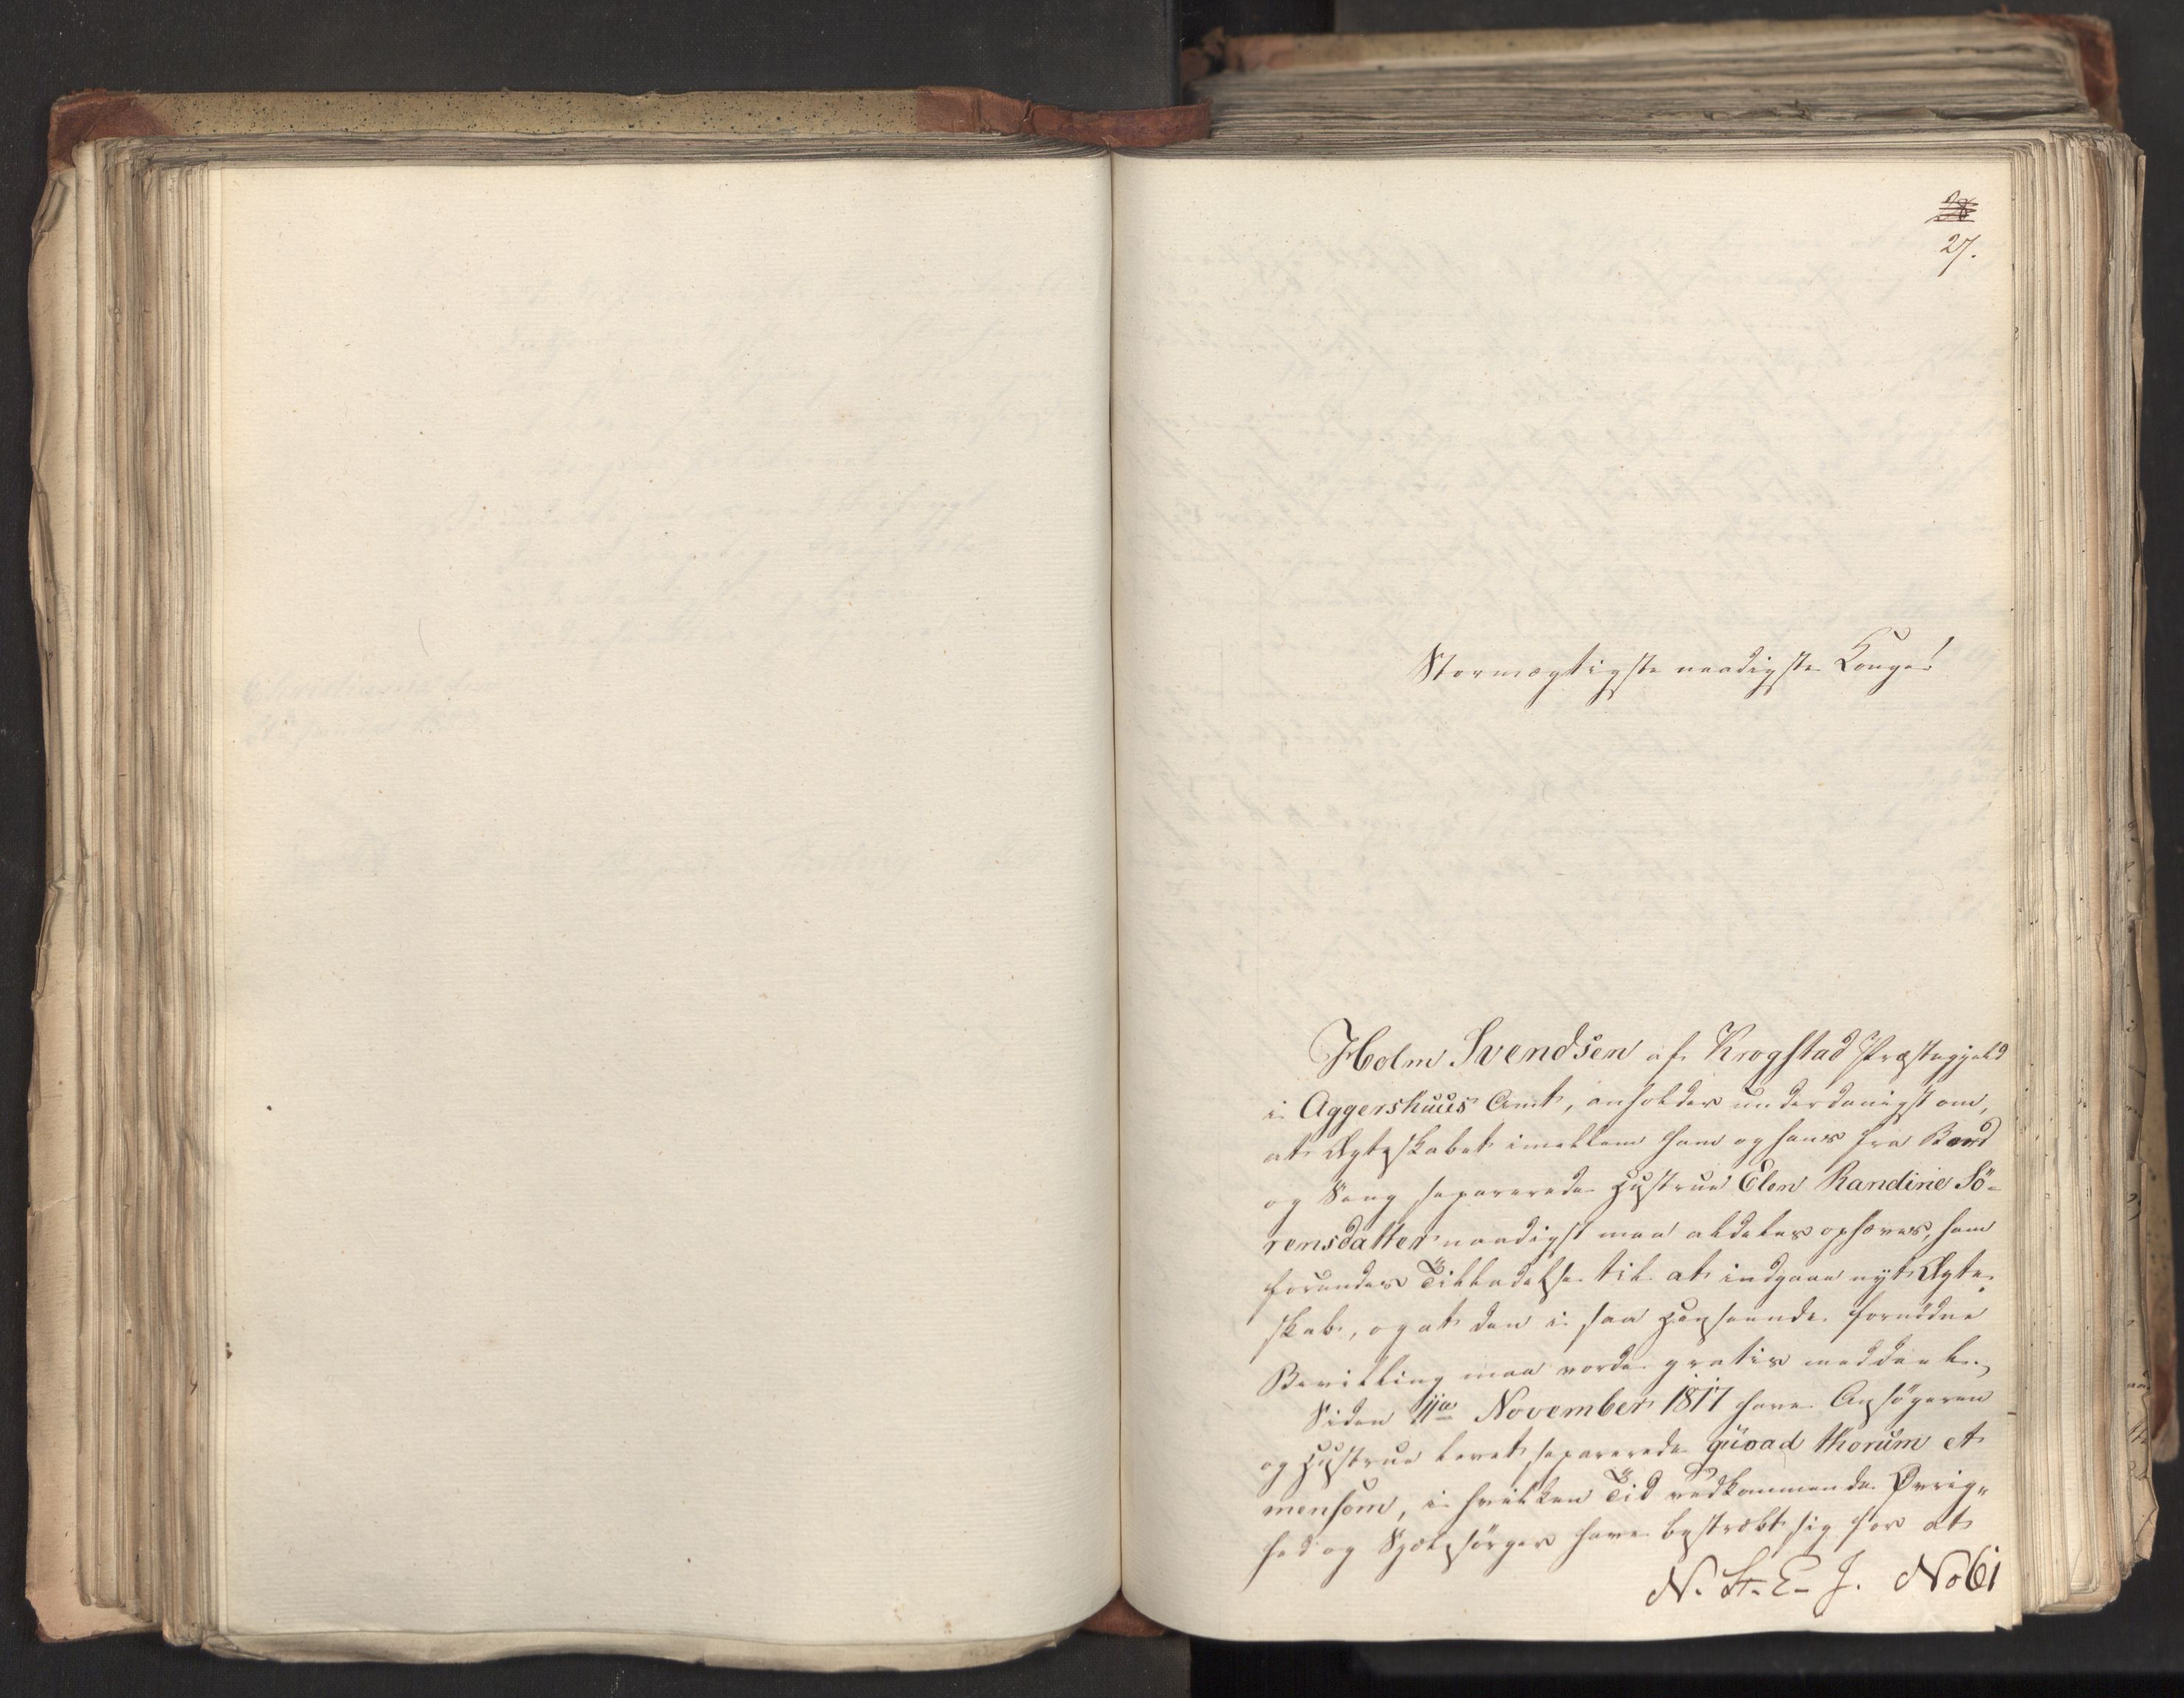 27.
Stormægtigste naadigste Konge!
Holm Svendsen af Krogstad Præstegjeld
i Aggershuus Amt, anholder underdanigst om,
at Ægteskabet imellem ham og hans fra Bord
og Seng separerede Hustrue Elen Randine Sö-
rensdatter naadigst maa aldeles ophæves, ham
forundes Tilladelse til at indgaae nyt Ægte-
skab, og at den i saa Henseende fornödne
Bevilling maa vorde gratis meddeelt.
Siden November 1817 have Ansögeren
og Hustrue levet separerede quoad thorum et
mensam, i hvilken Tid vedkommende Øvrig-
hed og Sjælesörger have bestræbt sig for at
N. St. E. J. No 61